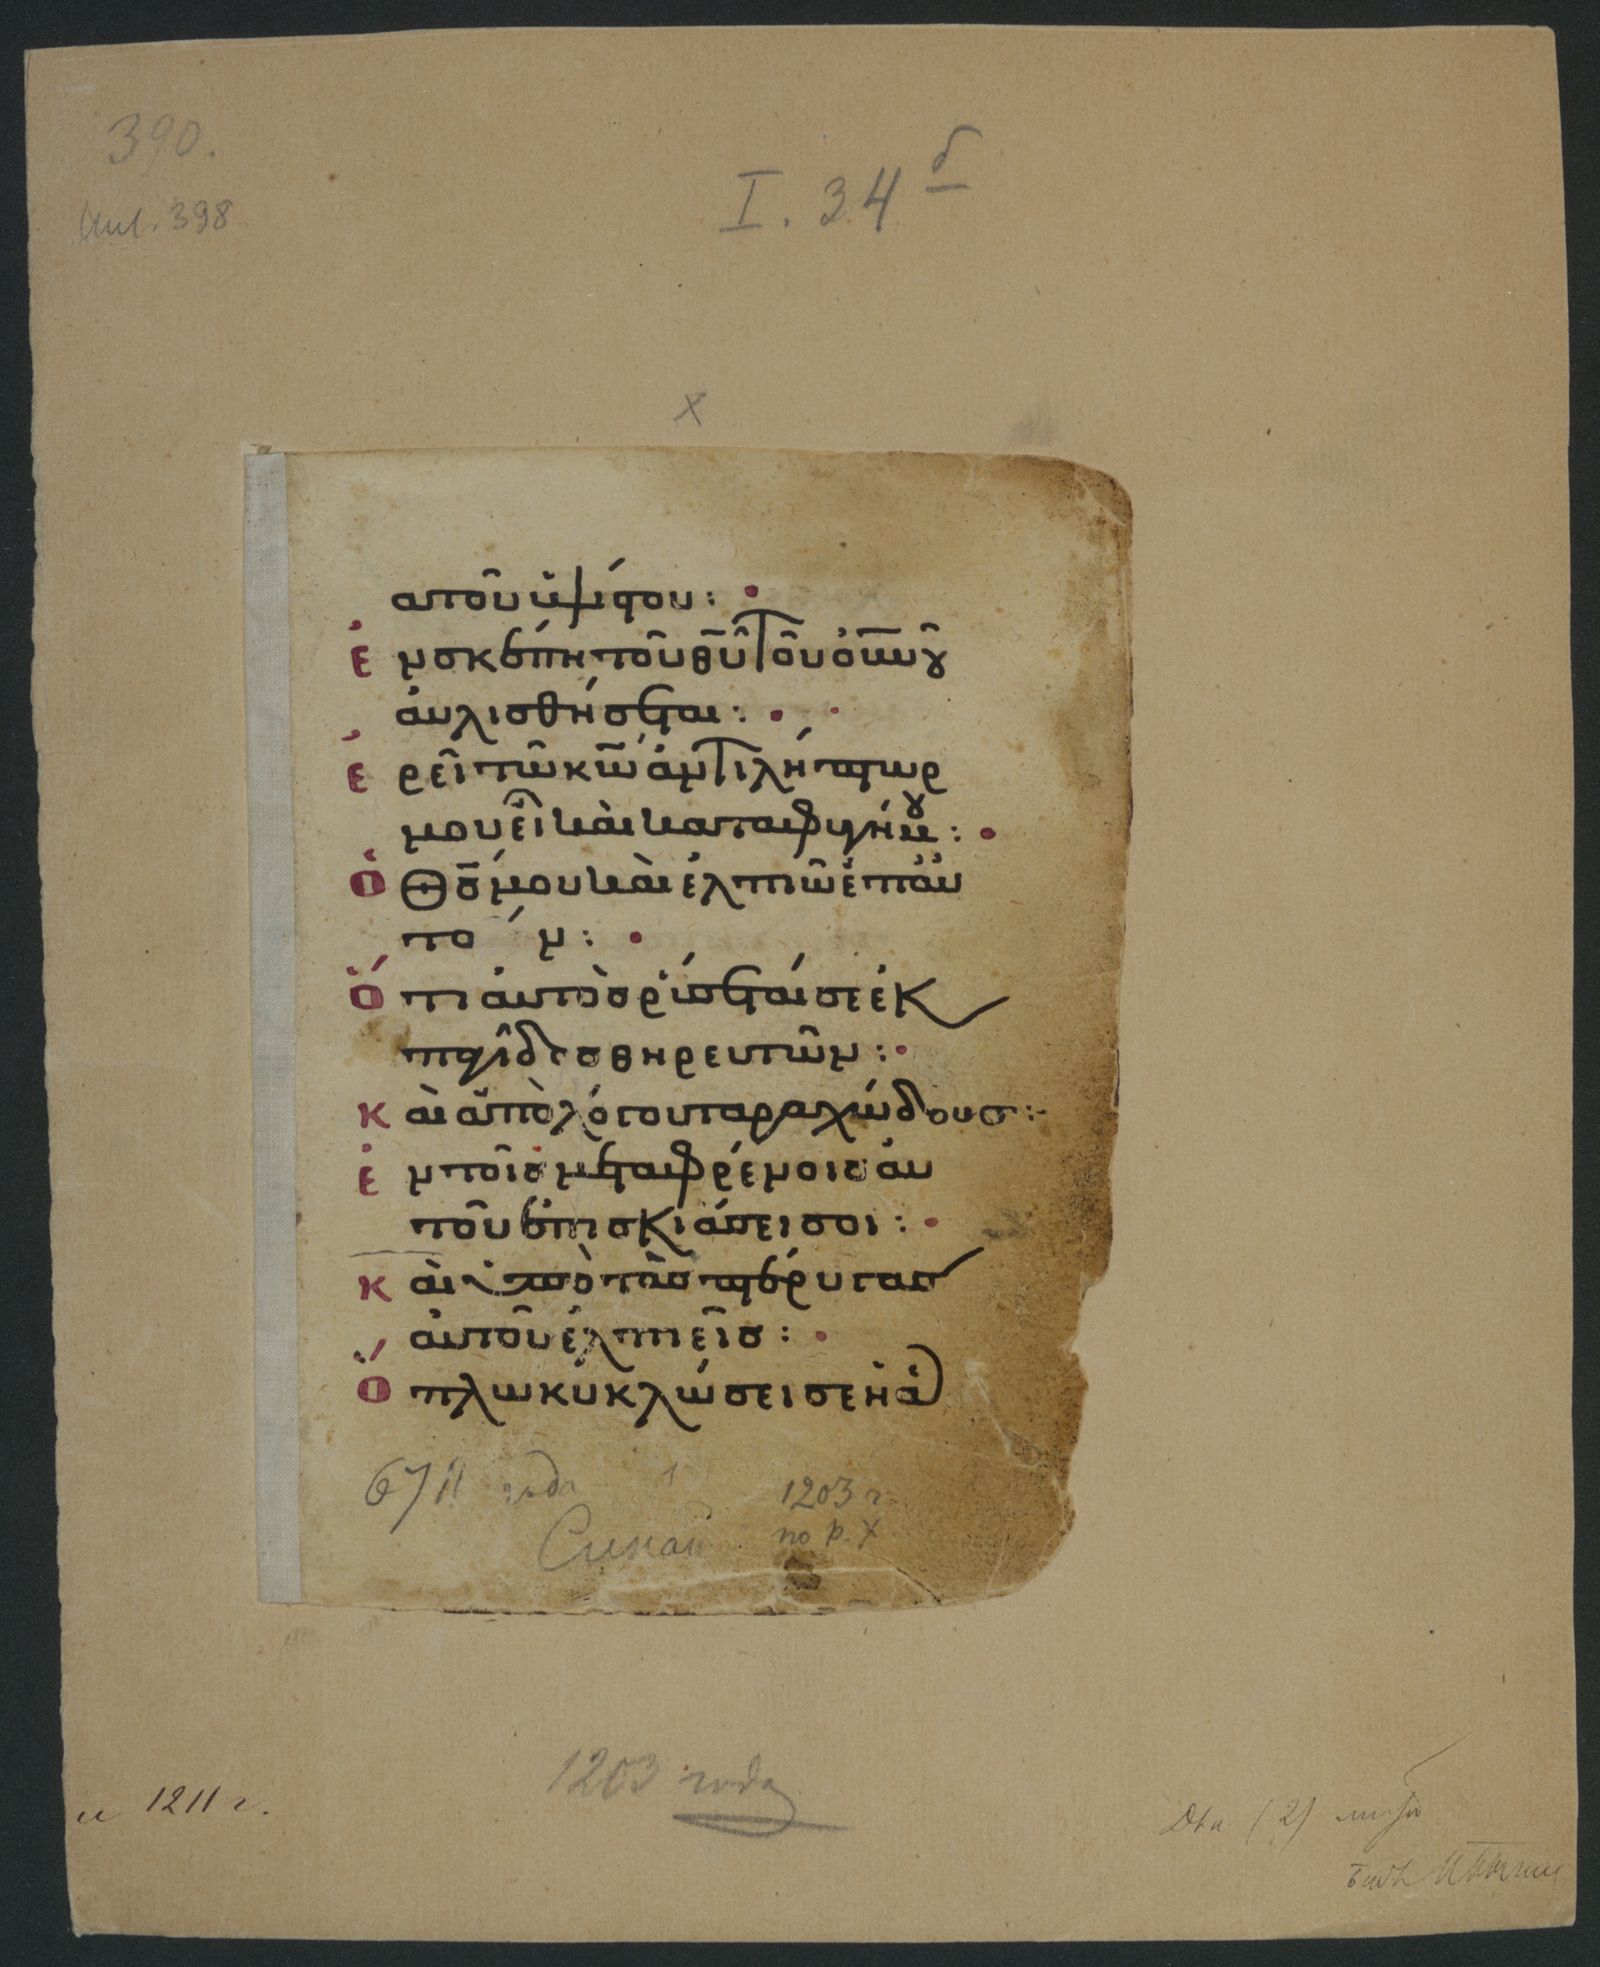 390.
398
I. 34 б
х
α που ὑψίστου :
ἐ ν σκέπῃ τοῦ θῡ τοῦ οὐνοῦ
αὐλισθήσεται :
ἐ ρεῖ τῶ κω̄ ἀντιλήπτωρ
μου εἶ καὶ καταφυγή μου :
ὁ Θς̄ μου καὶ ἐλπιῶ ἐπ αὐ
τόν :
ὅ τι αὐτὸσ ρύσεταί σε ἐκ
παγίδοσ θηρευτῶν :
κ αὶ ἀπὸ λόγου ταραχώδουσ :
ἐ ν τοῖσ μεταφρένοισ αὐ
τοῦ ἐπισκιάσει σοι :
κ αὶ ὑπὸ τὰσ πτέρυγασ
αὐτοῦ ἐλπιεῖσ :
ὅ πλω κυκλώσει σε ἡ ἀ
6711 года 1 1203 г.
Синай по р. Х
1203 года
и 1211 г.
Два (2)